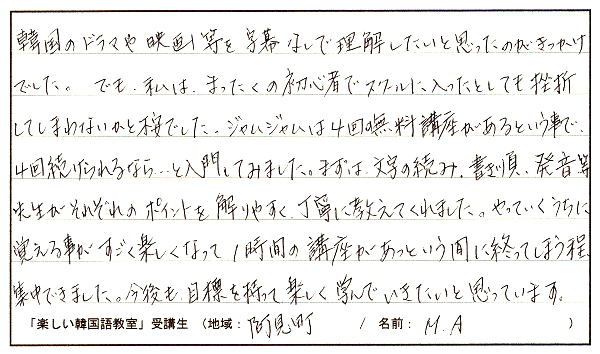 韓国のドラマや映画等を字幕なしで理解したいと思ったのがきっかけ
でした。でも、私は、まったくの初心者でスクールに入ったとしても挫折
してしまわないかと不安でした。ジャムジャムは4回の無料講座があるという事で、
4回続けられるなら…と入門してみました。まずは、文字の読み、書き順、発音等
先生がそれぞれのポイントを解りやすく、丁寧に教えてくれました。やっていくうちに
覚える事がすごく楽しくなって1時間の講座があっという間に終ってしまう程、
集中できました。今後も目標を持って楽しく学んでいきたいと思っています。
「楽しい韓国語教室」受講生 （地域： 阿見町 / 名前： M.A ）